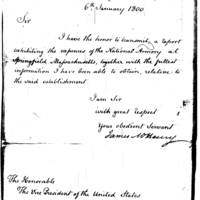 6th January 1800
Sir
I have the honor to transmit, a report
exhibiting the expences of the National Armory at
Springfield Massachusetts, together with the fullest
information I have been able to obtain, relative to
the said establishment.
I am Sir
with great respect
Your obedient Servant
James McHenry
The Honorable
The Vice President of the United States